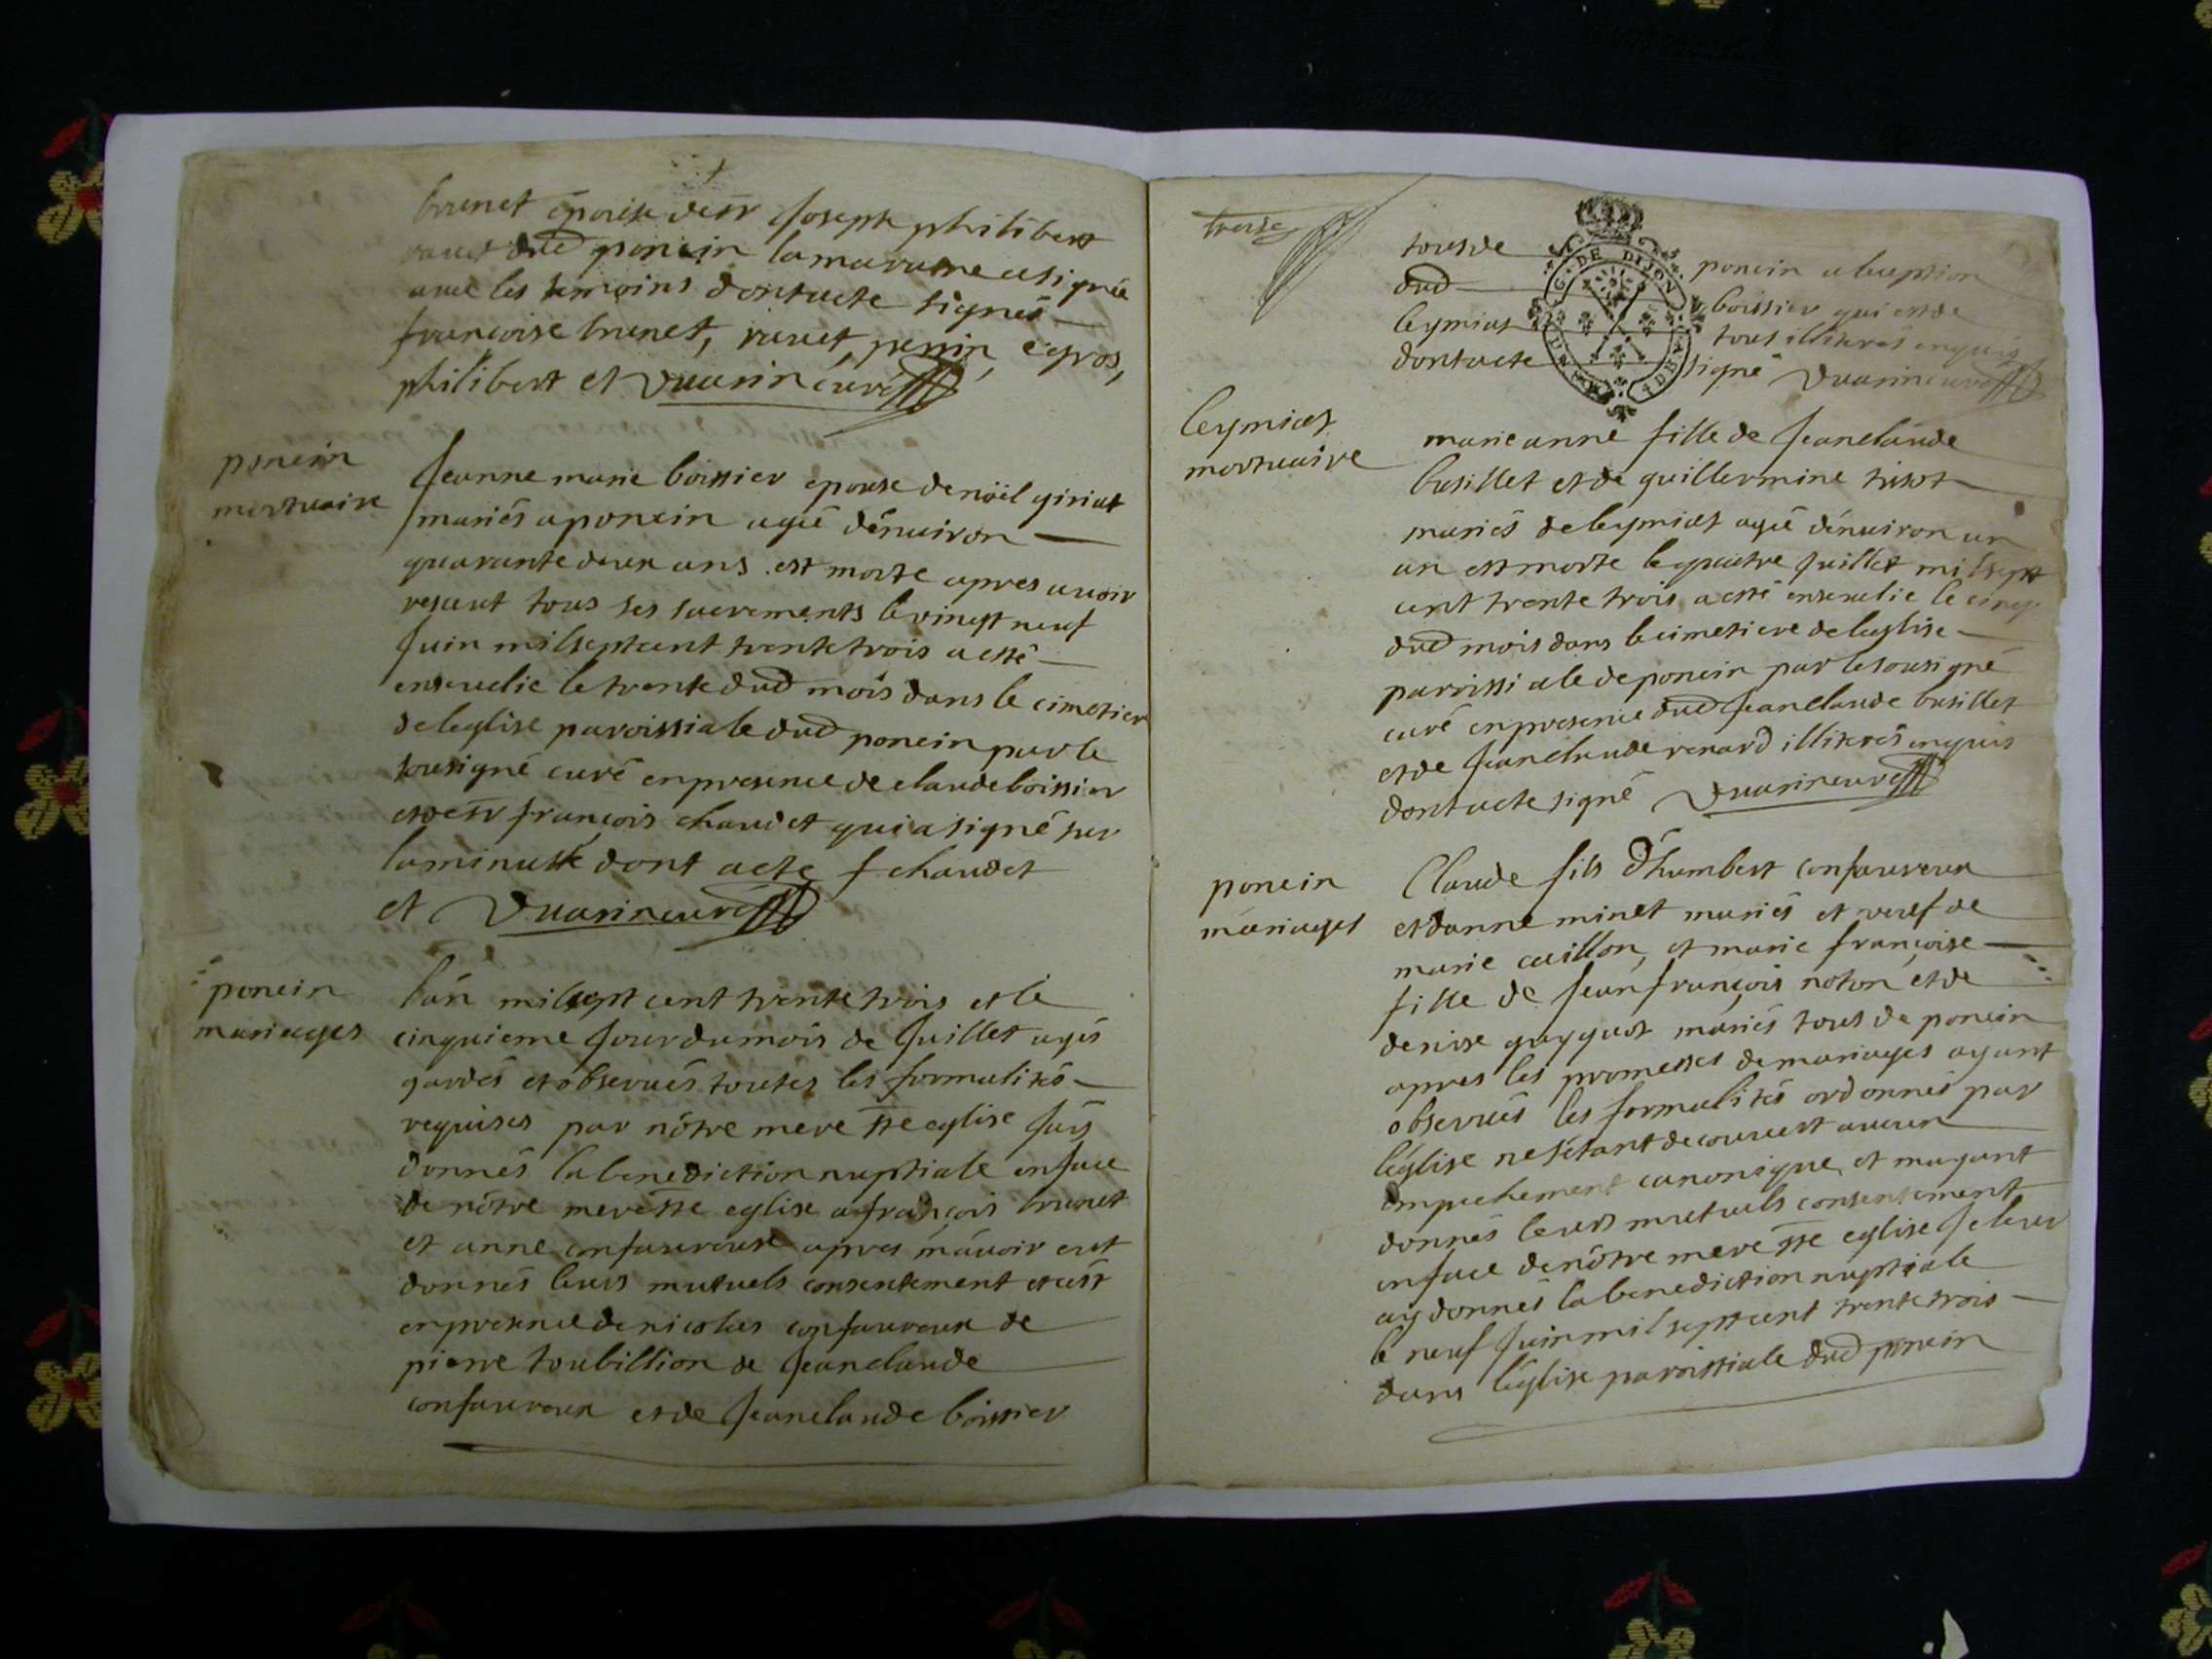 brunet épouse de sr Joseph philibert
ravet dud poncin la maraine a signée
avec les temoins dont acte signés
françoise brunet, ravet, perrin, egros,
philibert et Vuarin curé
poncin
mortuaire
Jeanne marie boissier epouse de noël giriat
mariés a poncin agée dénviron
quarante deux ans est morte apres avoir
resceut tous ses sacrements le vingt neuf
Juin mil sept cent trente trois a esté
ensevelie le trente dud mois dans le cimetier
de leglise paroissiale dud poncin par le
sousigné curé en presence de claude boissier
et de sr françois chaudet qui a signé sur
la minutte dont acte f chaudet
et Vuarin curé
poncin
mariages
lán mil sept cent trente trois et le
cinquieme Jour du mois de Juillet ayés
gardés et observés toutes les formalités
requises par nôtre mere ste eglise Jáy
donnés la benediction nuptiale en face
de nôtre mere ste eglise a françois brunet
et anne confavreux apres m'avoir eut
donnés leurs mutuels consentement et cést
en presence de nicolas confavreux de
pierre toubillion de Jean claude
confavreux et de Jean claude boissier
treize
tous de poncin a lexeption
dud boissier qui est de
leymiat tous illiterés enquis
dont acte signé Vuarin curé
C. DE DIJON
leymiat
mortuaire
marie anne fille de Jean claude
basillet et de guillermine tisot
mariés de leymiat agée dénviron un
an est morte le quatre Juillet mil sept
cent trente trois a esté ensevelie le cinq
dud mois dans le cimetiere de leglise
paroissiale de poncin par le sousigné
curé en presence dud Jean claude basillet
et de Jean claude renard illiterés enquis
dont acte signé Vuarin curé
poncin
mariages
Claude fils d'humbert confavreux
et danne minet mariés et veuf de
marie caillon, et marie françoise
fille de Jean françois noton et de
denise guyguot mariés tous de poncin
apres les promesses de mariages ayant
observés les formalités ordonnés par
léglise ne sétant decouvert aucun
empechement canonique et mayant
donnés leurs mutuels consentement
en face de nôtre mere ste eglise Je leur
ay donnés la benediction nuptiale
le neuf Juin mil sept cent trente trois
dans l'église paroissiale dud poncin